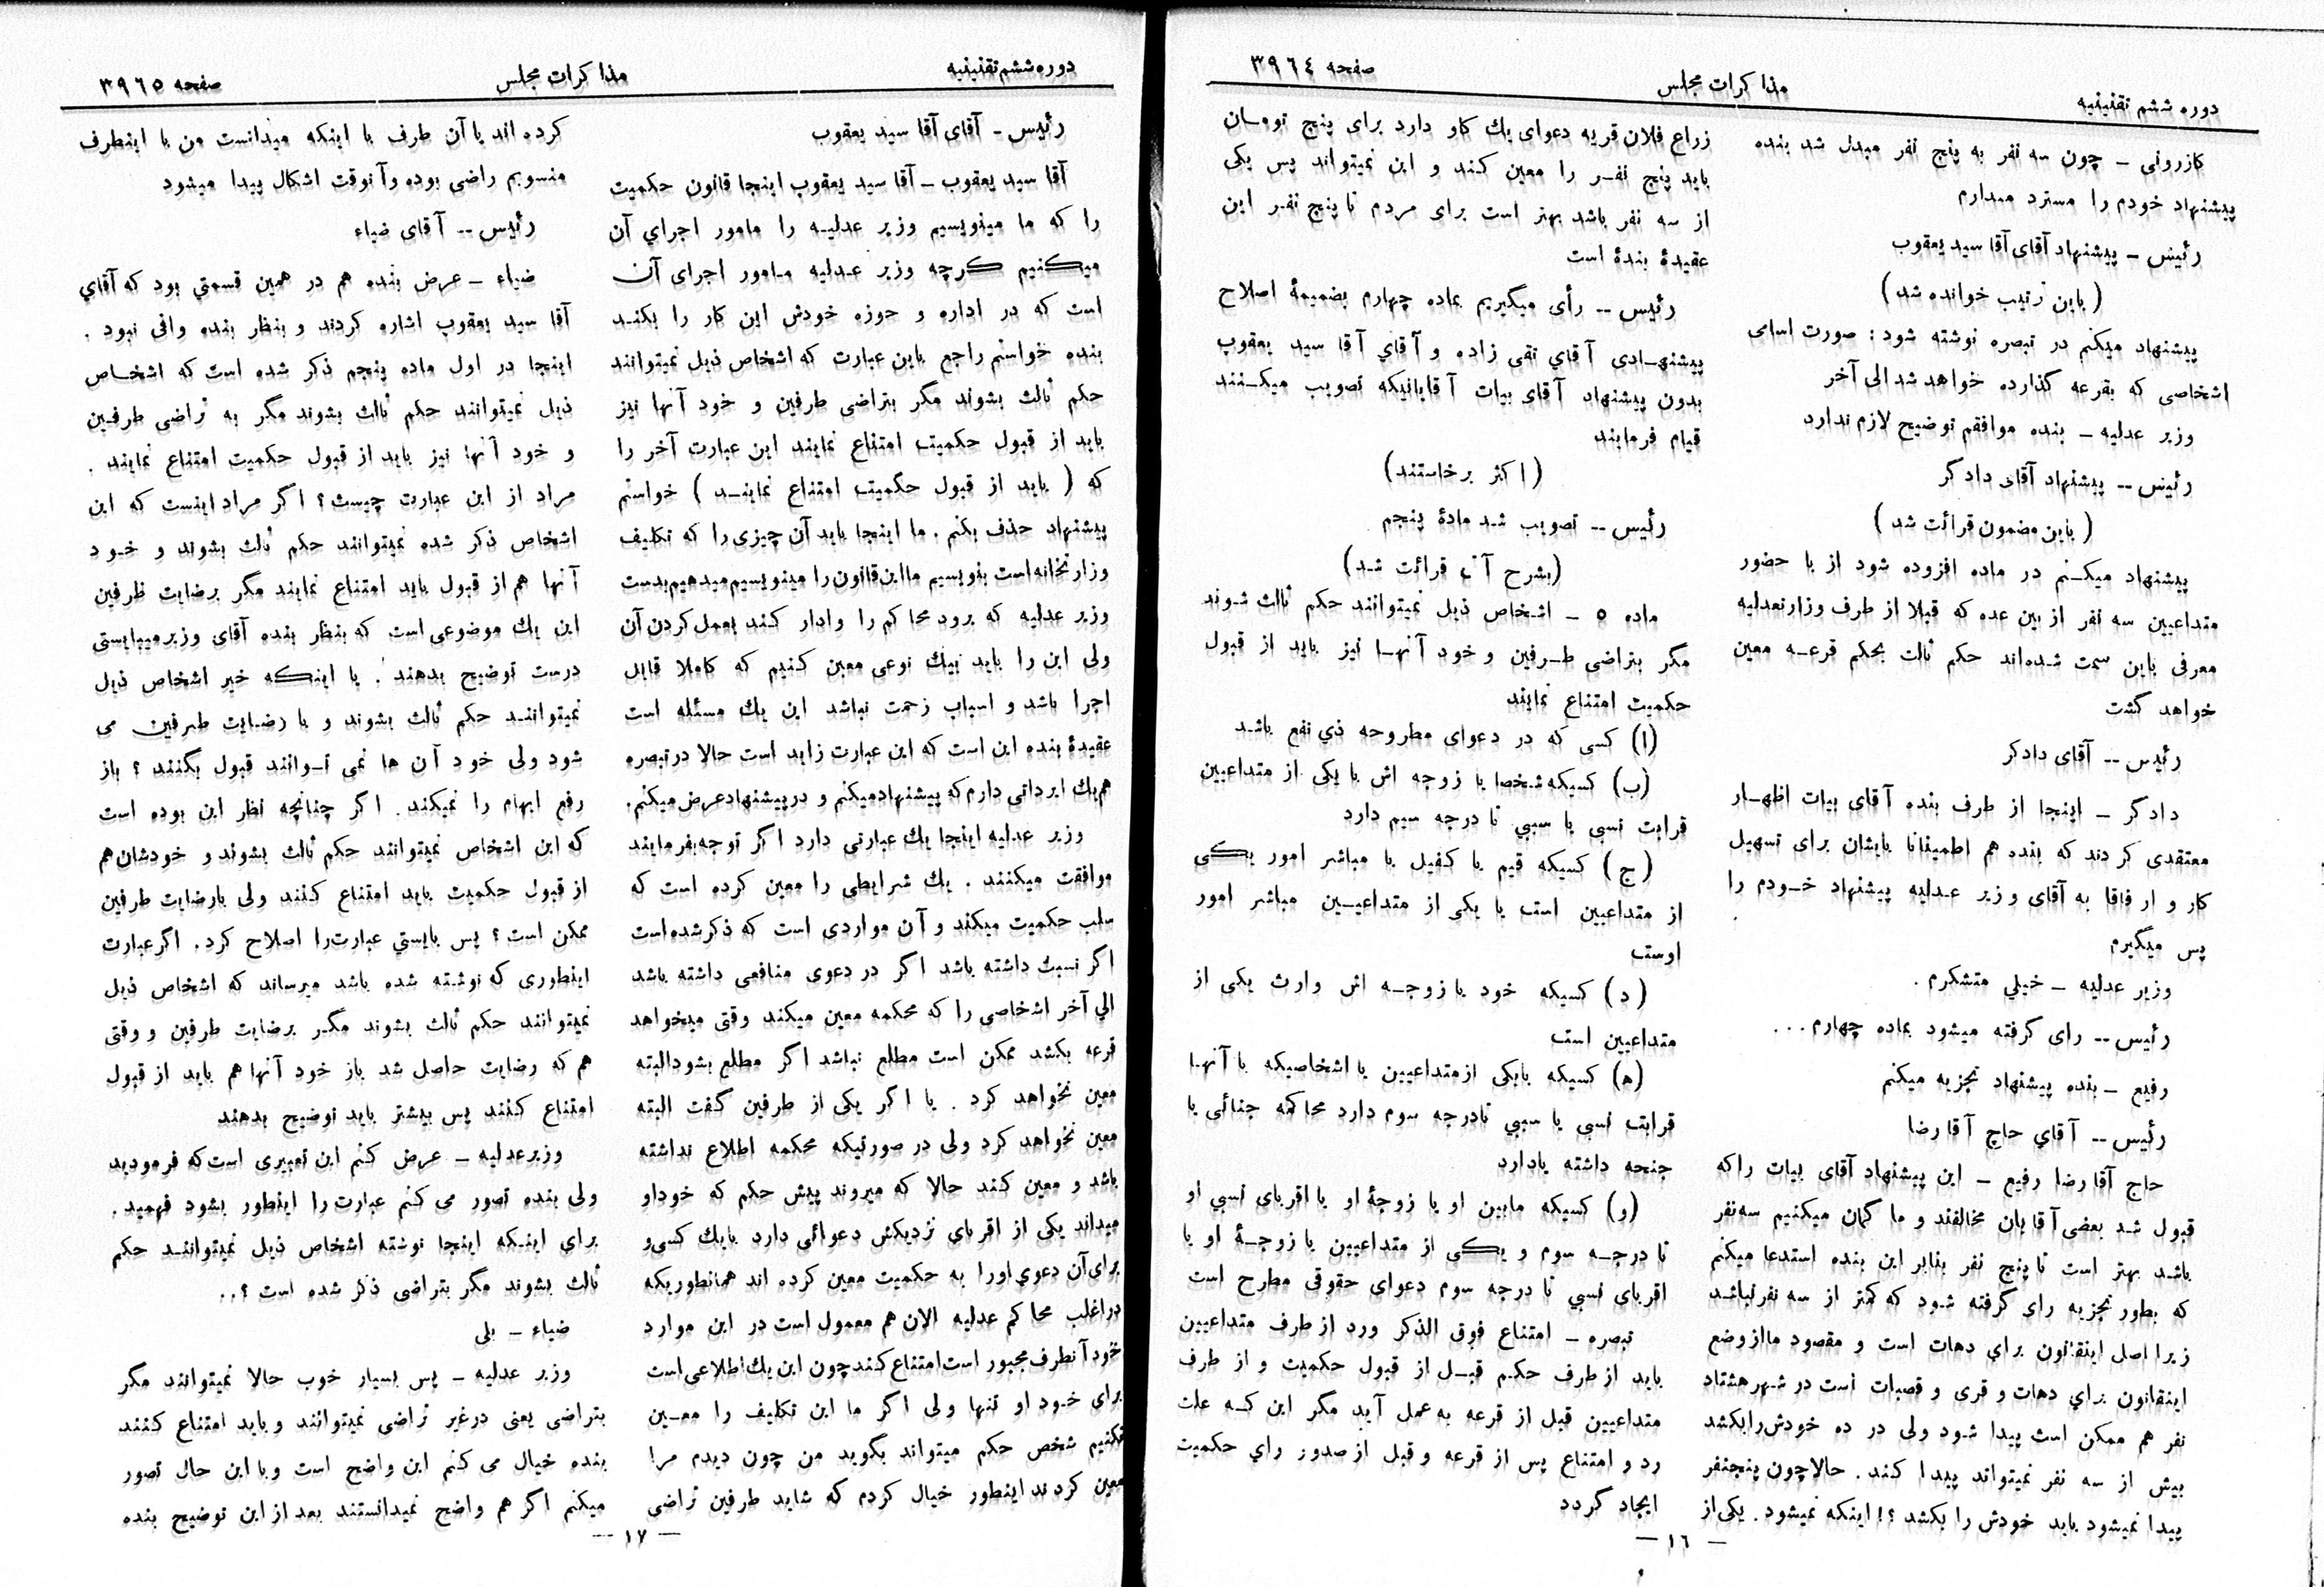 دوره ششم تقنینیه
مذاکرات مجلس
صفحه ۳۹٦٤
کازرونی – چون سه نفر به پنج نفر مبدل شد بنده
پیشنهاد خودم را مسترد میدارم
رئیس – پیشنهاد آقای آقا سید یعقوب
(باین ترتیب خوانده شد)
پیشنهاد میکنم در تبصره نوشته شود: صورت اسامی
اشخاصی که بقرعه گذارده خواهد شد الی آخر
وزیر عدلیه – بنده موافقم توضیح لازم ندارد
رئیس -- پیشنهاد آقای دادگر
(باین مضمون قرائت شد)
پیشنهاد میکنم در ماده افزوده شود از با حضور
متداعیین سه نفر از بین عده که قبلا از طرف وزارتعدلیه
معرفی باین سمت شده‌اند حکم ثالث بحکم قرعه معین
خواهد گشت
رئیس -- آقای دادگر
دادگر – اینجا از طرف بنده آقای بیات اظهار
معتقدی کردند که بنده هم اطمینانا بایشان برای تسهیل
کار و ارفاقا به آقای وزیر عدلیه پیشنهاد خودم را
پس میگیرم
وزیر عدلیه – خیلي متشکرم .
رئیس -- رای گرفته میشود بماده چهارم ...
رفیع – بنده پیشنهاد تجزیه میکنم
رئیس -- آقاي حاج آقا رضا
حاج آقا رضا رفیع – این پیشنهاد آقای بیات را که
قبول شد بعضی آقایان مخالفند و ما گمان میکنیم سه نفر
باشد بهتر است تا پنج نفر بنابر این بنده استدعا میکنم
که بطور تجزیه رای گرفته شود که کمتر از سه نفر نباشد
زیرا اصل اینقانون براي دهات است و مقصود ما از وضع
اینقانون براي دهات و قری و قصبات است در شهر هشتاد
نفر هم ممکن است پیدا شود ولی در ده خودش را بکشد
بیش از سه نفر نمیتواند پیدا کند . حالا چون پنجنفر
پیدا نمیشود باید خودش را بکشد ؟! اینکه نمیشود . یکی از
زراع فلان قریه دعوای یك گاو دارد برای پنج تومان
باید پنج نفر را معین کند و این نمیتواند پس یکی
از سه نفر باشد بهتر است برای مردم تا پنج نفر این
عقیدهٔ بندهٔ است
رئیس -- رأی میگیریم بماده چهارم بضمیمهٔ اصلاح
پیشنهادی آقاي تقی زاده و آقاي آقا سید یعقوب
بدون پیشنهاد آقای بیات آقایانیکه تصویب میکنند
قیام فرمایند
(اکثر برخاستند)
رئیس -- تصویب شد مادهٔ پنجم
(بشرح آتی قرائت شد)
ماده ٥ – اشخاص ذیل نمیتوانند حکم ثالث شوند
مگر بتراضی طرفین و خود آنها نیز باید از قبول
حکمیت امتناع نمایند
(ا) کسی که در دعوای مطروحه ذي نفع باشد
(ب) کسیکه شخصا یا زوجه اش با یکی از متداعیین
قرابت نسبی یا سببي تا درجه سیم دارد
(ج) کسیکه قیم یا کفیل یا مباشر امور یکی
از متداعیین است یا یکی از متداعیین مباشر امور
اوست
(د) کسیکه خود یا زوجه اش وارث یکی از
متداعیین است
(ه) کسیکه بایکی ازمتداعیین یا اشخاصیکه با آنها
قرابت نسبی یا سببي تادرجه سوم دارد محاکمه جنائی یا
جنحه داشته یادارد
(و) کسیکه مابین او یا زوجهٔ او یا اقربای نسبي او
تا درجه سوم و یکی از متداعیین یا زوجهٔ او یا
اقربای نسبي تا درجه سوم دعوای حقوقی مطرح است
تبصره – امتناع فوق الذکر ورد از طرف متداعیین
باید از طرف حکم قبل از قبول حکمیت و از طرف
متداعیین قبل از قرعه به عمل آید مگر این که علت
رد و امتناع پس از قرعه و قبل از صدور راي حکمیت
ایجاد گردد
— ١٦ —
دوره ششم تقنینیه
مذاکرات مجلس
صفحه ۳۹٦٥
رئیس – آقای آقا سید یعقوب
آقا سید یعقوب – آقا سید یعقوب اینجا قانون حکمیت
را که ما مینویسیم وزیر عدلیه را مامور اجراي آن
میکنیم گرچه وزیر عدلیه مامور اجرای آن
است که در اداره و حوزه خودش این کار را بکند
بنده خواستم راجع باین عبارت که اشخاص ذیل نمیتوانند
حکم ثالث بشوند مگر بتراضی طرفین و خود آنها نیز
باید از قبول حکمیت امتناع نمایند این عبارت آخر را
که ( باید از قبول حکمیت امتناع نمایند ) خواستم
پیشنهاد حذف بکنم . ما اینجا باید آن چیزی را که تکلیف
وزارتخانه است بنویسیم ما این قانون را مینویسیم میدهیم بدست
وزیر عدلیه که برود محاکم را وادار کند بعمل کردن آن
ولی این را باید بیك نوعی معین کنیم که کاملا قابل
اجرا باشد و اسباب زحمت نباشد این یك مسئله است
عقیدهٔ بنده این است که این عبارت زاید است حالا در تبصره
هم یك ایرداتی دارم که پیشنهاد میکنم و در پیشنهاد عرض میکنم.
وزیر عدلیه اینجا یك عبارتی دارد اگر توجه بفرمایند
موافقت میکنند . یك شرایطی را معین کرده است که
سلب حکمیت میکند و آن مواردی است که ذکر شده است
اگر نسبت داشته باشد اگر در دعوی منافعی داشته باشد
الي آخر اشخاصی را که محکمه معین میکند وقتی میخواهد
قرعه بکشد ممکن است مطلع نباشد اگر مطلع بشود البته
معین نخواهد کرد . یا اگر یکی از طرفین گفت البته
معین نخواهد کرد ولی در صورتیکه محکمه اطلاع نداشته
باشد و معین کند حالا که میروند پیش حکم که خود او
میداند یکی از اقربای نزدیکش دعوائی دارد بایك کسی و
برای آن دعوي اورا به حکمیت معین کرده اند همانطوریکه
در اغلب محاکم عدلیه الان هم معمول است در این موارد
خود آنطرف مجبور است امتناع کند چون این یك اطلاعی است
برای خود او تنها ولی اگر ما این تکلیف را معین
نکنیم شخص حکم میتواند بگوید من چون دیدم مرا
معین کردند اینطور خیال کردم که شاید طرفین تراضی
کرده اند یا آن طرف با اینکه میدانست من با اینطرف
منسوبم راضی بوده و آنوقت اشکال پیدا میشود
رئیس -- آقای ضیاء
ضیاء – عرض بنده هم در همین قسمتي بود که آقاي
آقا سید یعقوب اشاره کردند و بنظر بنده وافی نبود .
اینجا در اول ماده پنجم ذکر شده است که اشخاص
ذیل نمیتوانند حکم ثالث بشوند مگر به تراضی طرفین
و خود آنها نیز باید از قبول حکمیت امتناع نمایند .
مراد از این عبارت چیست؟ اگر مراد اینست که این
اشخاص ذکر شده نمیتوانند حکم ثالث بشوند و خود
آنها هم از قبول باید امتناع نمایند مگر برضایت طرفین
این یك موضوعی است که بنظر بنده آقای وزیر میبایستی
درست توضیح بدهند . یا اینکه خیر اشخاص ذیل
نمیتوانند حکم ثالث بشوند و با رضایت طرفین می
شود ولی خود آن ها نمی توانند قبول بکنند ؟ باز
رفع ابهام را نمیکند. اگر چنانچه نظر این بوده است
که این اشخاص نمیتوانند حکم ثالث بشوند و خودشان هم
از قبول حکمیت باید امتناع کنند ولی بارضایت طرفین
ممکن است ؟ پس بایستي عبارت را اصلاح کرد. اگر عبارت
اینطوری که نوشته شده باشد میرساند که اشخاص ذیل
نمیتوانند حکم ثالث بشوند مگر برضایت طرفین و وقتی
هم که رضایت حاصل شد باز خود آنها هم باید از قبول
امتناع کنند پس بیشتر باید توضیح بدهند
وزیر عدلیه – عرض کنم این تعبیری است که فرمودید
ولی بنده تصور می کنم عبارت را اینطور بشود فهمید .
براي اینکه اینجا نوشته اشخاص ذیل نمیتوانند حکم
ثالث بشوند مگر بتراضی ذکر شده است ؟..
ضیاء – بلی
وزیر عدلیه – پس بسیار خوب حالا نمیتوانند مگر
بتراضی یعنی درغیر تراضی نمیتوانند و باید امتناع کنند
بنده خیال می کنم این واضح است و با این حال تصور
میکنم اگر هم واضح نمیدانستند بعد از این توضیح بنده
— ١٧ —